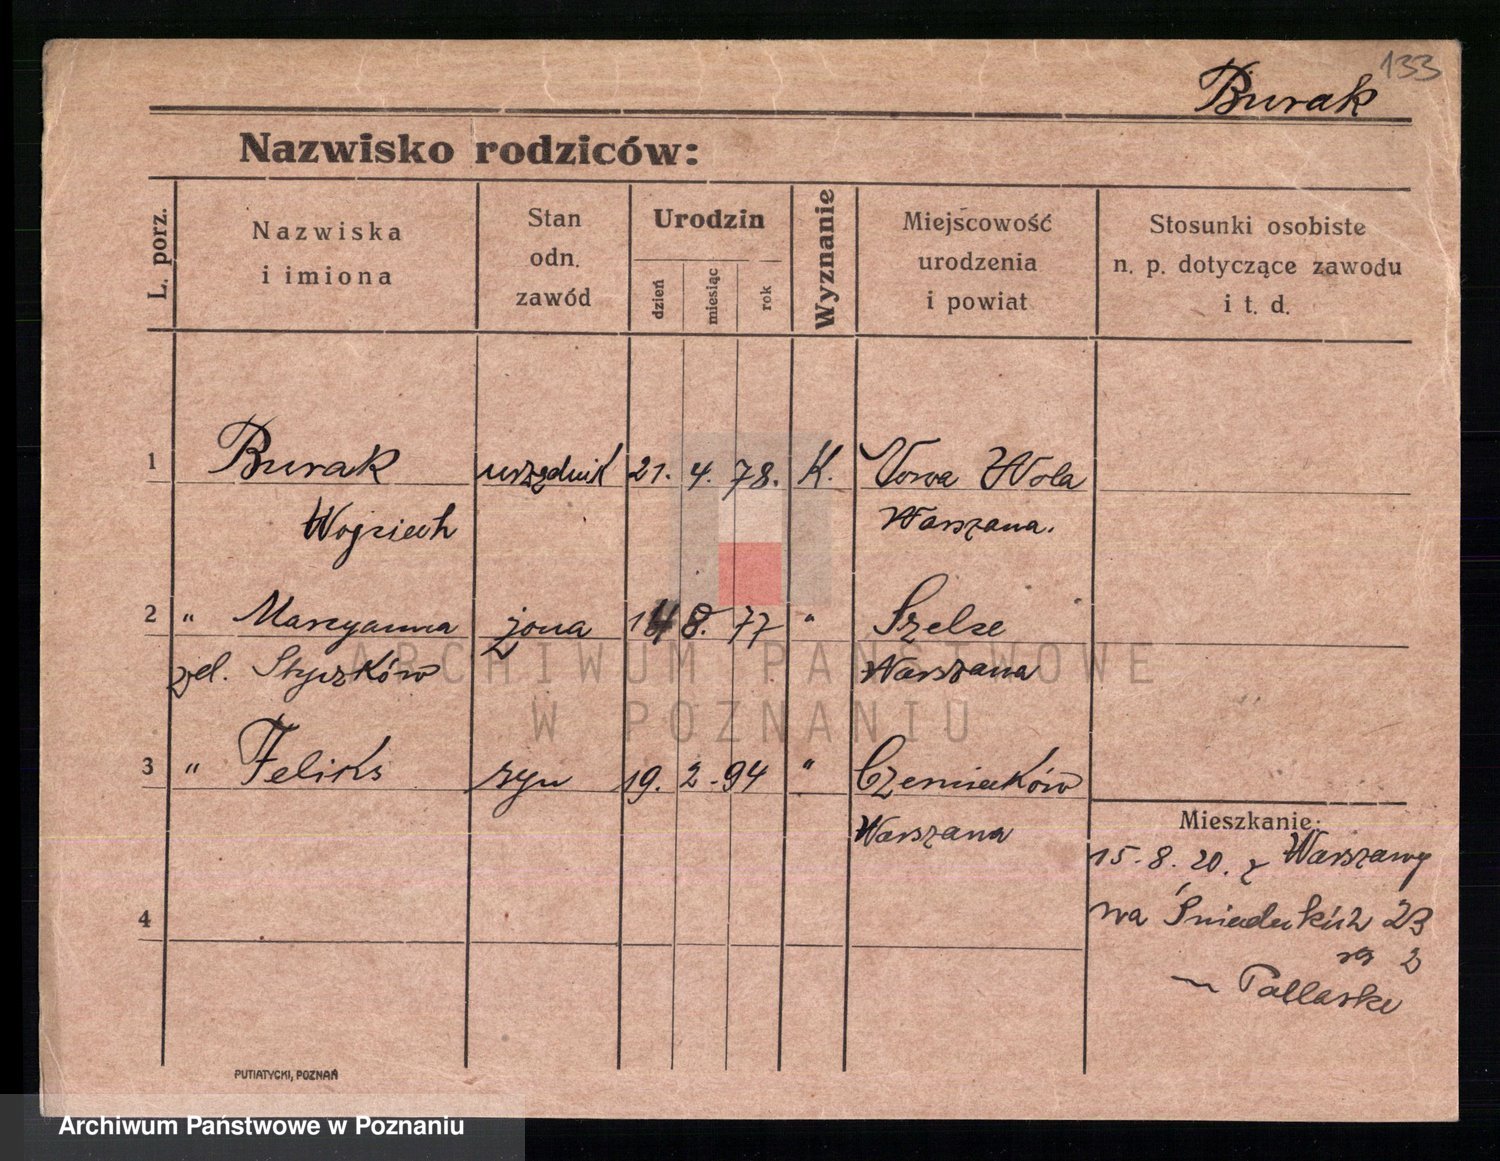 133
Burak
Nazwisko rodziców:
L. porz.
Nazwiska
i imiona
Stan
odn.
zawód
Urodzin
dzień
miesiąc
rok
Wyznanie
Miejscowość
urodzenia
i powiat
Stosunki osobiste
n. p. dotyczące zawodu
i t. d.
1 Burak urzędnik 21. 4. 78. K. Nowa Wola
Wojciech Warszawa.
2 " Marcyanna żona 14 8. 77 " Szelce
zd. Styczków Warszawa
3 " Feliks syn 19. 2. 94 " Czerniaków
Warszawa
Mieszkanie:
15. 8. 20. z Warszawy
na Śniadeckich 23
4
2
PUTIATYCKI, POZNAŃ
ARCHIWUM PAŃSTWOWE
W POZNANIU
Archiwum Państwowe w Poznaniu